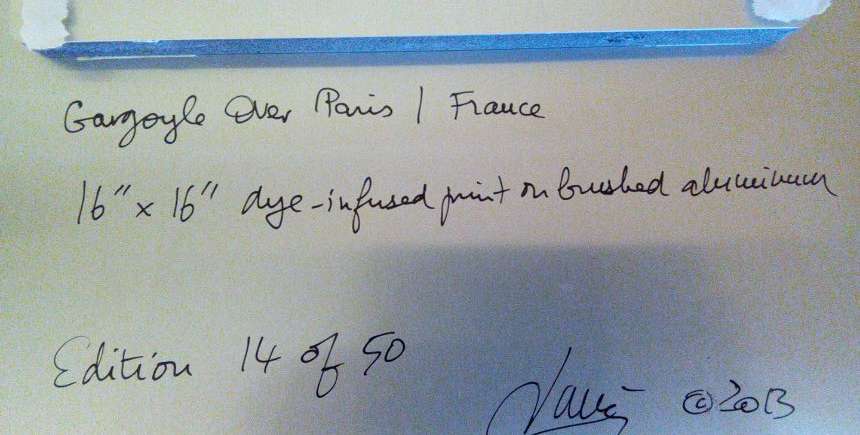 Gargoyle Over Paris / France
16" x 16" dye-infused print on brushed aluminum
Edition 14 of 50
©2013